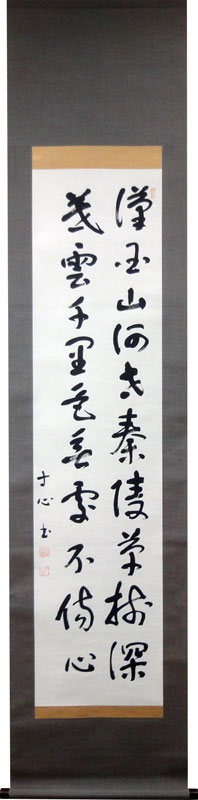 漢國山河在秦陵草樹深
暮雲千里色無處不傷心
寸心書